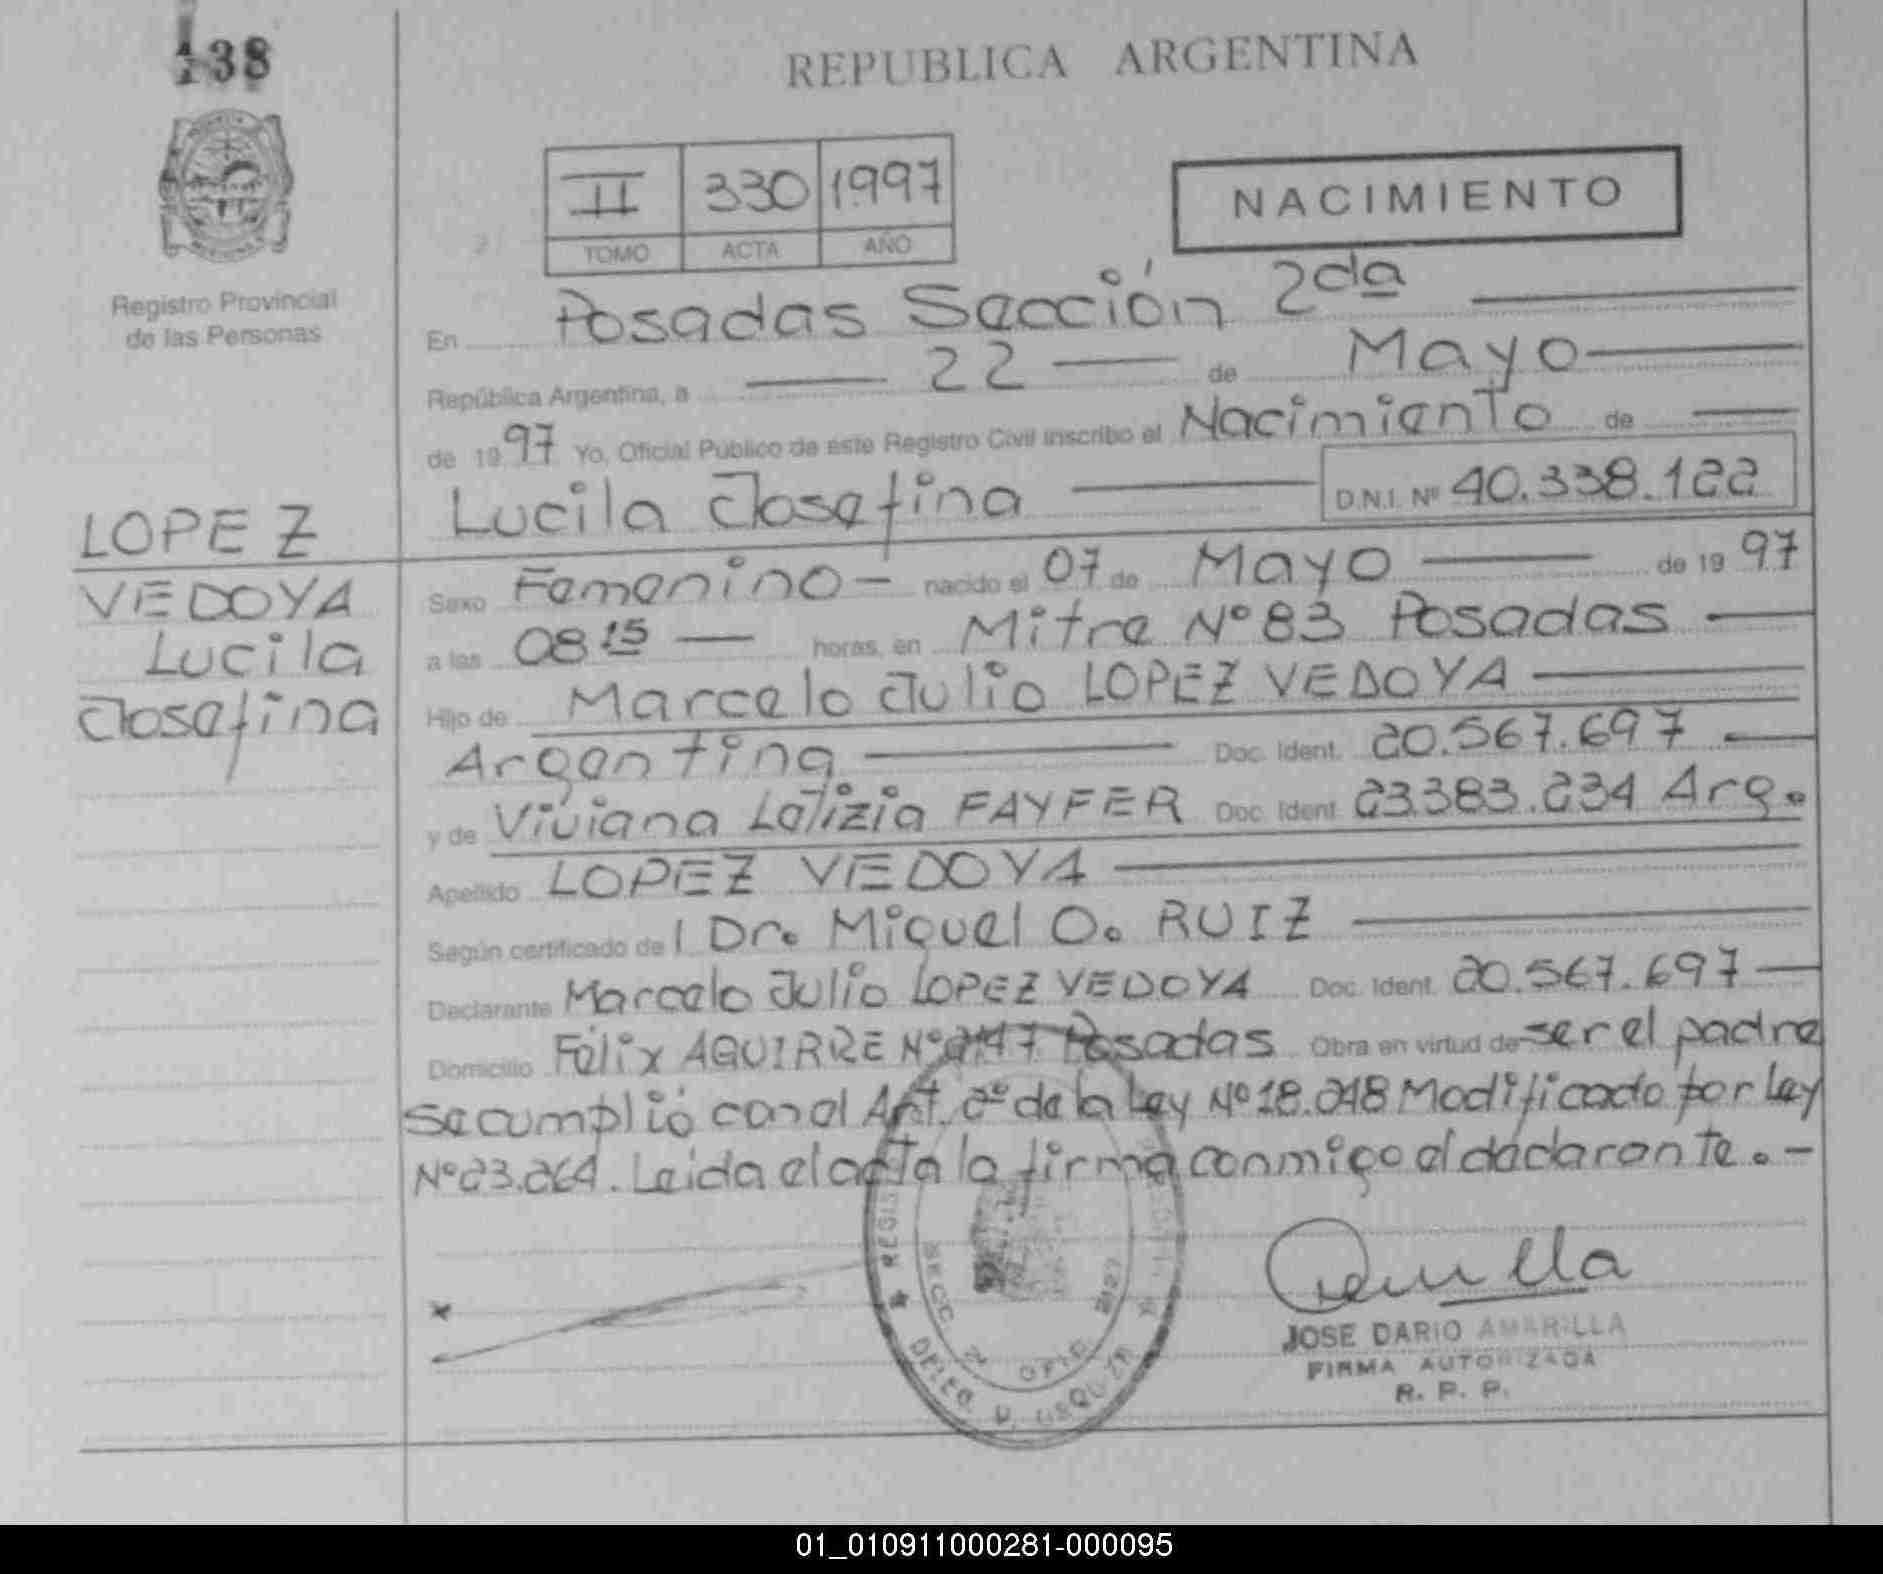 138
REPUBLICA ARGENTINA
II 330 1997
TOMO ACTA AÑO
NACIMIENTO
Registro Provincial
de las Personas
En Posadas Sección 2da
República Argentina, a 22 de Mayo
de 1997 Yo, Oficial Público de este Registro Civil inscribo el Nacimiento de
Lucila Josefina D.N.I. Nº 40.338.122
LOPEZ
VEDOYA
Lucila
Josefina
Sexo Femenino - nacido el 07 de Mayo de 1997
a las 08 15 horas, en Mitre Nº 83 Posadas
Hijo de Marcelo Julio LOPEZ VEDOYA
Argentina Doc. Ident. 20.567.697
y de Viviana Letizia FAYFER Doc. Ident. 23.383.234 Arg.
Apellido LOPEZ VEDOYA
Según certificado de l Dr. Miguel O. RUIZ
Declarante Marcelo Julio LOPEZ VEDOYA Doc. Ident. 20.567.697
Domicilio Félix AGUIRRE Nº Posadas Obra en virtud de ser el padre
se cumplió con el Art. 2º de la Ley Nº 18.248 Modificado por Ley
Nº 23.264. Leida el acta la firma conmigo el declarante.-
SECC 2ª OFIC
DELEG. V. URQUIZA
JOSE DARIO AMARILLA
FIRMA AUTORIZADA
R. P. P.
01_010911000281-000095